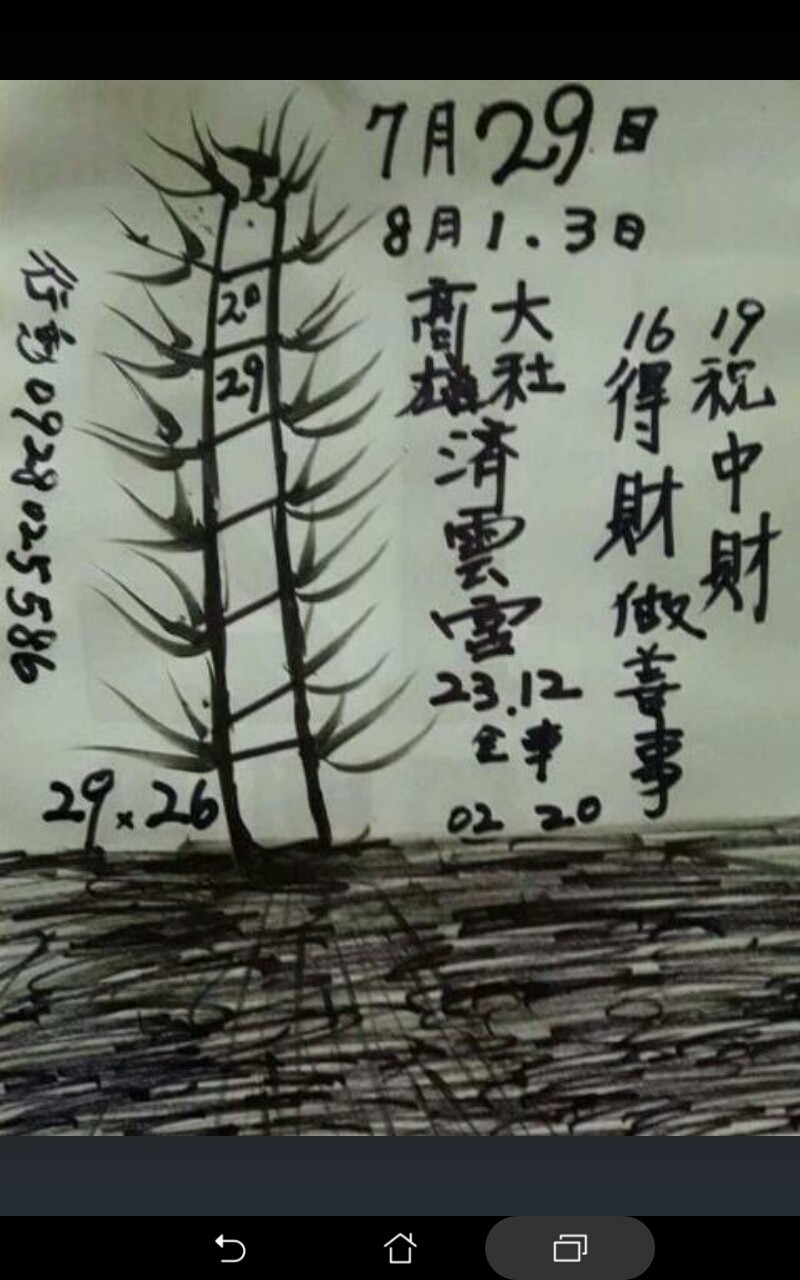 7月29日
8月1.3日
19祝中財
16得財做善事
大社
高雄
済雲宮
23.12
全車
02 20
20
29
行動0928025586
29×26